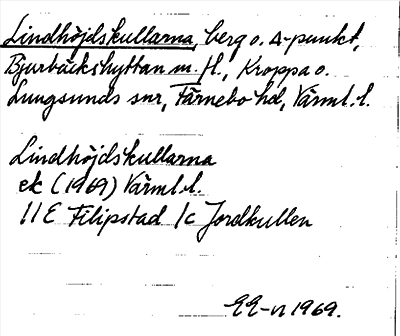 Lindhöjdskullarna, berg o. Δ-punkt,
Bjurbäckshyttan m. fl., Kroppa o.
Lungsunds snr, Färnebo hd, Värml. l.
Lindhöjdskullarna
ek (1969) Värml. l.
11E Filipstad 1c Jordkullen
1969.